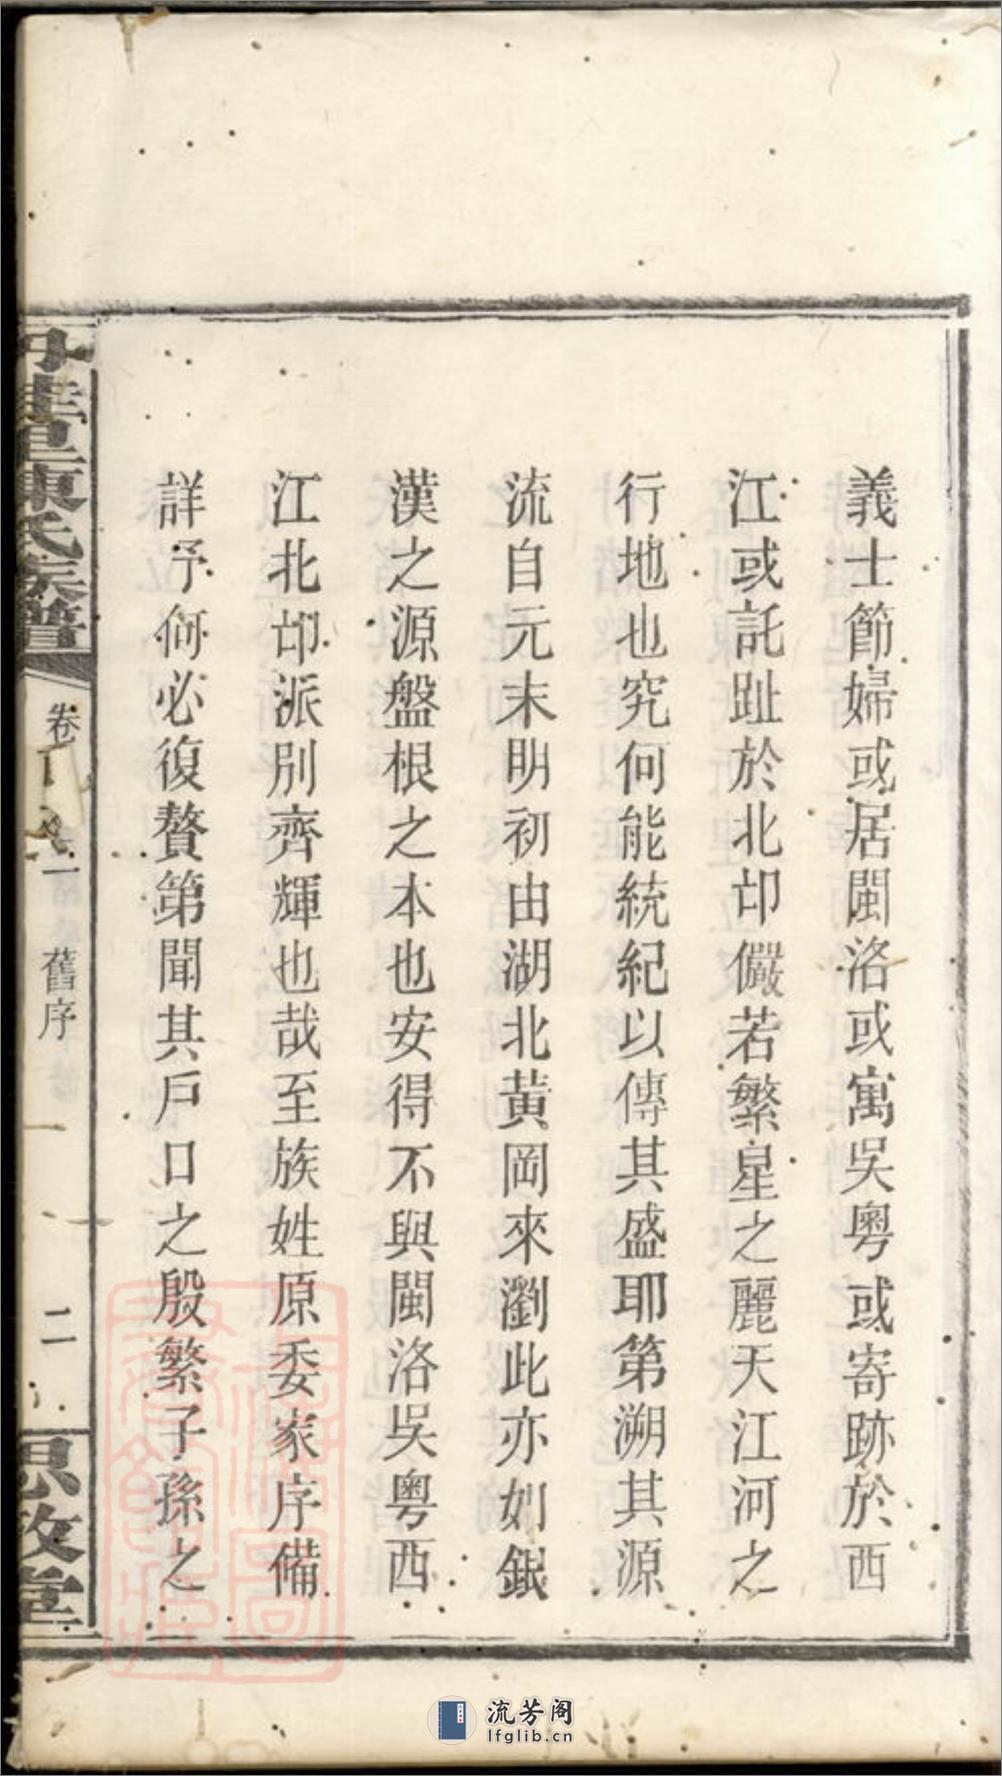 義士節婦或居閩洛或寓吳粵或寄跡於西
江或託趾於北邙儼若繁星之麗天江河之
行地也究何能統紀以傳其盛耶第溯其源
流自元末明初由湖北黃岡來瀏此亦如銀
漢之源盤根之本也安得不與閩洛吳粵西
江北邙派別齊輝也哉至族姓原委家序備
詳予何必復贅第聞其戶口之殷繁子孫之
氏族譜
卷
舊序
二
堂
流芳阁
lfglib.cn